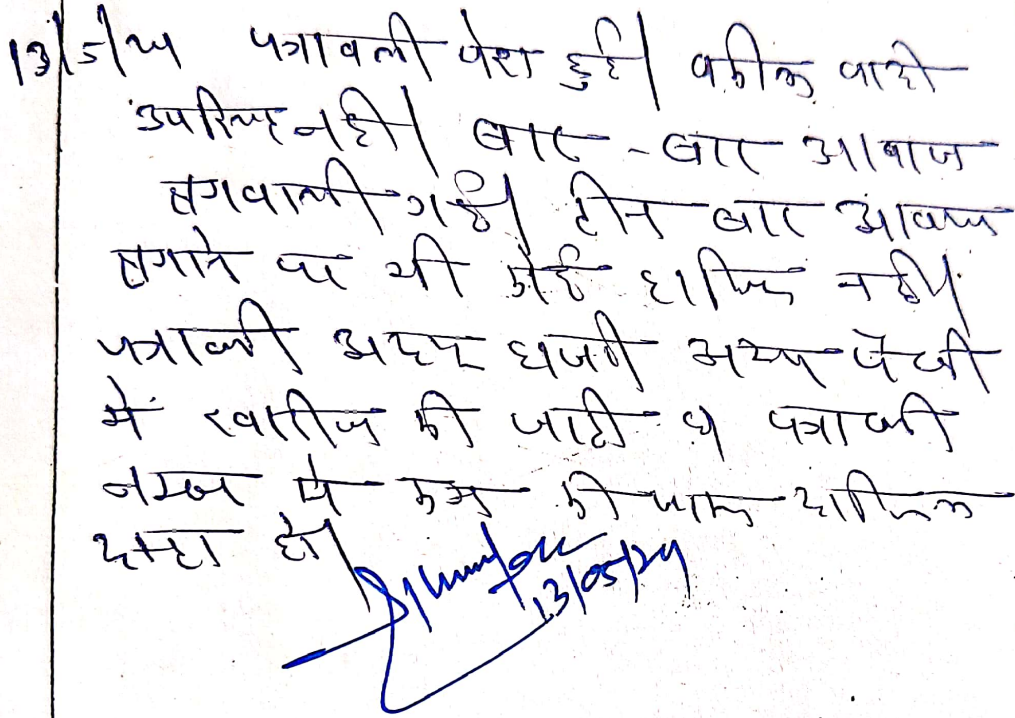 13/5/24 पत्रावली पेश हुई। वकील वादी
उपस्थित नही। बार-बार आवाज
लगवाली गई। तीन बार आवाज
लगाने पर भी कोई हाजिर नही।
पत्रावली अदम हाजरी अदम पैरवी
मे खारीज की जाती है। पत्रावली
नम्बर से कम की जाकर दाखिल
दफ्तर हो।
13/05/24